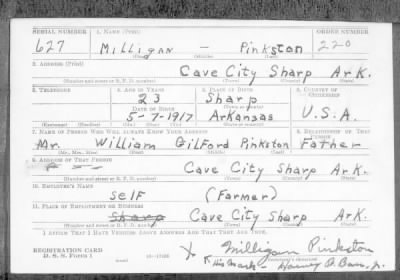 SERIAL NUMBER 1. NAME (Print) ORDER NUMBER
627 Milligan — Pinkston 220
2. ADDRESS (Print)
Cave City Sharp Ark.
(Number and street or R. F. D. number) (Town) (County) (State)
3. TELEPHONE 4. AGE IN YEARS 5. PLACE OF BIRTH 6. COUNTRY OF CITIZENSHIP
23 Sharp
DATE OF BIRTH
5-7-1917 Arkansas U.S.A.
(Exchange) (Number) (Mo.) (Day) (Yr.) (State or country)
7. NAME OF PERSON WHO WILL ALWAYS KNOW YOUR ADDRESS 8. RELATIONSHIP OF THAT PERSON
Mr. William Gilford Pinkston Father
(Mr., Mrs., Miss) (First) (Middle) (Last)
9. ADDRESS OF THAT PERSON
Cave City Sharp Ark.
(Number and street or R. F. D. number) (Town) (County) (State)
10. EMPLOYER'S NAME
Self (Farmer)
11. PLACE OF EMPLOYMENT OR BUSINESS
Sharp Cave City Sharp Ark.
(Number and street or R. F. D. number) (Town) (County) (State)
I AFFIRM THAT I HAVE VERIFIED ABOVE ANSWERS AND THAT THEY ARE TRUE.
REGISTRATION CARD
D. S. S. Form 1 X Milligan Pinkston
X His Mark - Jr.